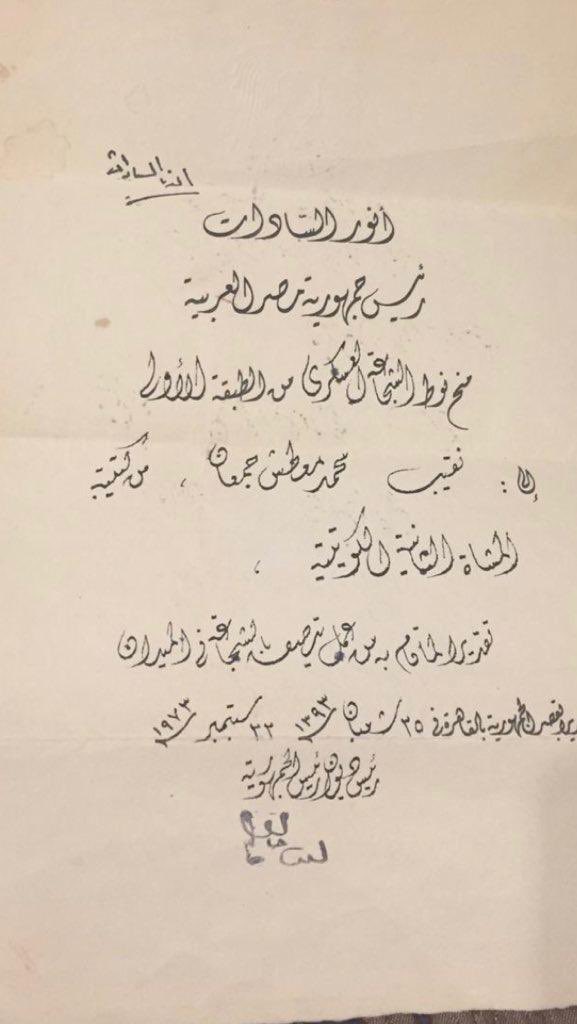 أنور السادات
أنور السادات
رئيس جمهورية مصر العربية
منح نوط الشجاعة العسكرى من الطبقة الأولى
إلى : نقيب محمد معطش جمعان ، من كتيبة
المشاة الثانية الكويتية ،
تقديرا لما قام به من عمل يتصف بالشجاعة فى الميدان
بقصر الجمهورية بالقاهرة فى ٢٥ شعبان ١٣٩٣ ٢٢ سبتمبر ١٩٧٣
رئيس ديوان رئيس الجمهورية